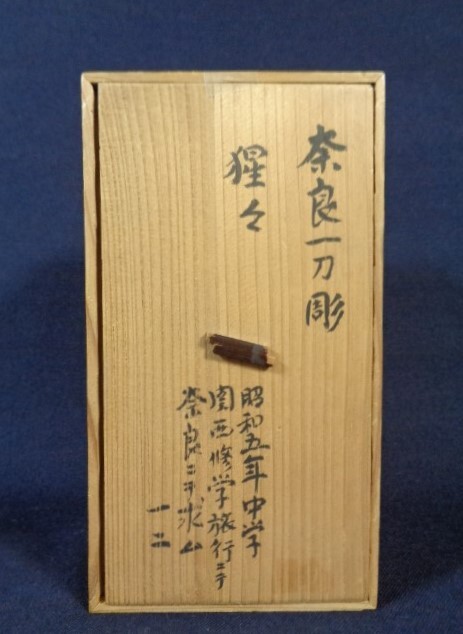 奈良一刀彫
猩々
昭和五年中学
関西修学旅行ニテ
奈良ニテ求ム
一二